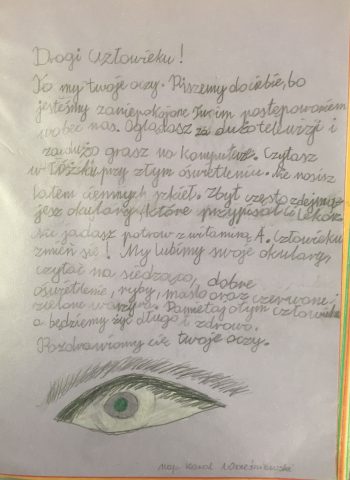 Drogi Człowieku!
To my twoje oczy. Piszemy do ciebie, bo
jesteśmy zaniepokojone Twoim postępowaniem
wobec nas. Oglądasz za dużo telewizji i
za dużo grasz na komputerze. Czytasz
w łóżku przy złym oświetleniu. Nie nosisz
latem ciemnych szkieł. Zbyt często zdejmu-
jesz okulary, które przypisał Ci lekarz.
Nie jadasz potraw z witaminą A. Człowieku
zmień się! My lubimy swoje okulary,
czytać na siedząco, dobre
oświetlenie, ryby, masło oraz czerwone i
zielone warzywa. Pamiętaj o tym człowieku
a będziemy żyć długo i zdrowo.
Pozdrawiamy cię twoje oczy.
Karol